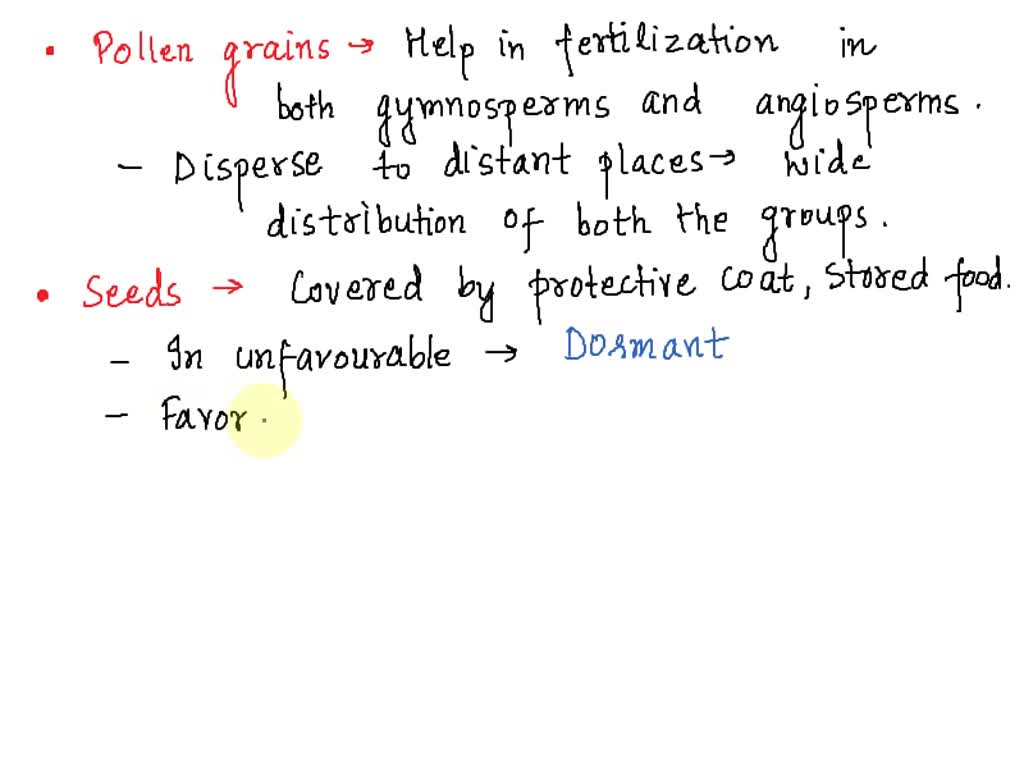 • Pollen grains → Help in fertilization in
both gymnosperms and angiosperms.
- Disperse to distant places → wide
distribution of both the groups.
• Seeds → Covered by protective coat, stored food.
- In unfavourable → Dormant
- Favor